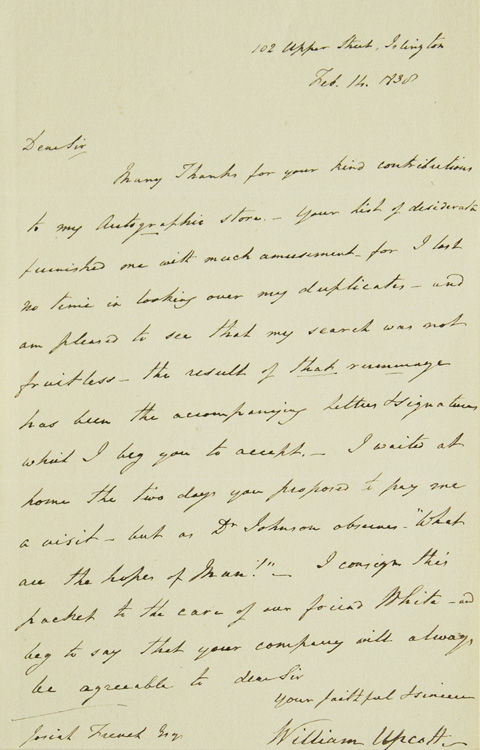 102 Upper Street, Islington
Feb. 14. 1838
Dear Sir
Many Thanks for your kind contributions
to my Autographic store. – Your list of desiderata
furnished me with much amusement – for I lost
no time in looking over my duplicates – and
am pleased to see that my search was not
fruitless – the result of that rummage
has been the accompanying letters & signatures
which I beg you to accept. – I waited at
home the two days you proposed to pay me
a visit – but as Dr Johnson observes – "What
are the hopes of Man!" – I consign this
packet to the care of our friend White – and
beg to say that your company will always
be agreeable to dear Sir
Your faithful & sincere
William Upcott
Josiah French Esq.